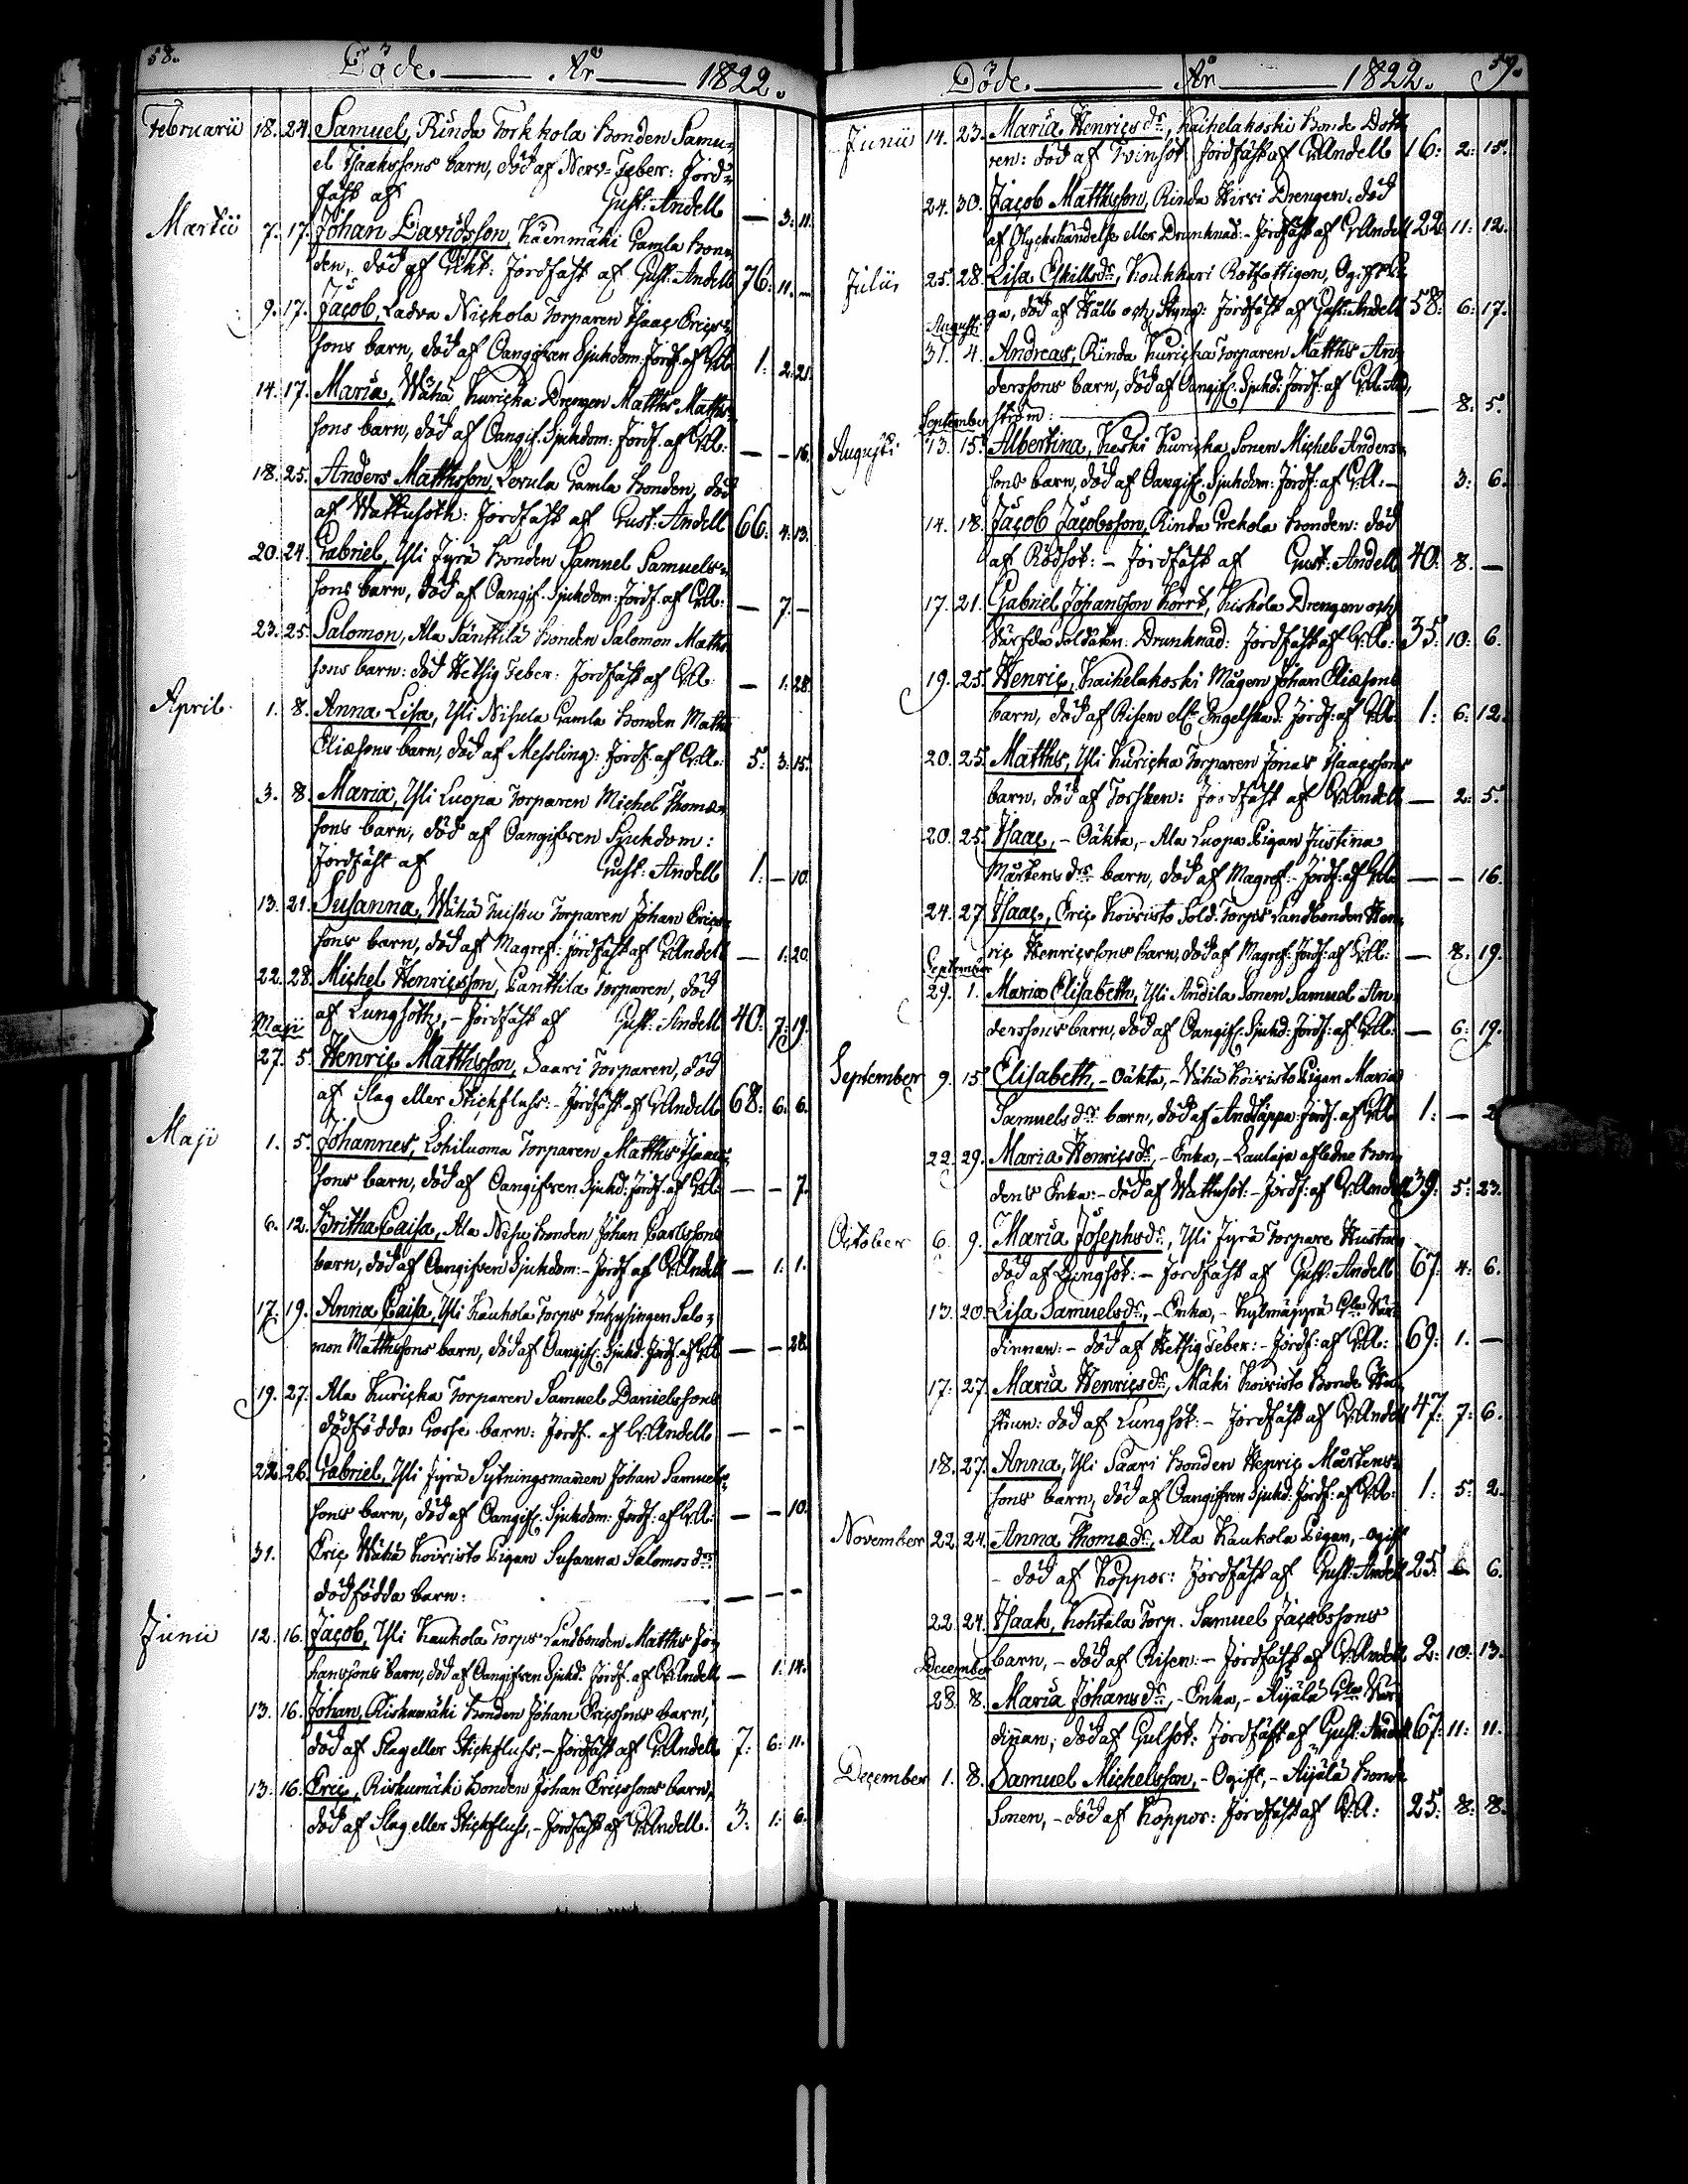 58.
Döde. År 1822.
Februarii 18. 24. Samuel, Rinda Torkkola Bonden Samu=
el Isaakssons barn, död af Nerv=Feber: Jord=
fäst af Gust: Andell — 3: 11.
Martii 7. 17. Johan Davidsson, Käenmäki Gamla Bon=
den, död af Gikt: Jordfäst af Gust: Andell 76: 11. —
9. 17. Jacob, Ladva Nickola Torparen Isaac Erics=
sons barn, död af Oangifven Sjukdom: Jordf. af G:A: 1: 2: 21.
14. 17. Maria, Wähä Kuricka Drengen Matths Matths=
sons barn, död af Oangif. Sjukdom: Jordf. af G:A: — — 16.
18. 25. Anders Matthsson, Lerula Gamla Bonden, död
af Wattusoth: Jordfäst af Gust: Andell 66: 4: 13.
20. 24. Gabriel, Yli Jyrä Bonden Samuel Samuels=
sons barn, död af Oangif. Sjukdom: Jordf. af G:A: — 7: —
23. 25. Salomon, Ala Sänttilä Bonden Salomon Matths
sons barn: död Hetsig Feber: Jordfäst af G:A: — 1: 28.
April. 1. 8. Anna Lisa, Yli Nisula Gamla Bonden Matths
Eliæsons barn, död af Messling: Jordf. af G:A: 5: 3: 15.
3. 8. Maria, Yli Luopa Torparen Michel Thomæ=
sons barn, död af Oangifven Sjukdom:
Jordfäst af Gust: Andell 1: — 10.
13. 21. Susanna, Wähä Tuisku Torparen Johan Erics=
sons barn, död af Magref: Jordfäst af G:Andell — 1: 20.
22. 28. Michel Henricsson, Panttila Torparen, död
af Lungsoth: – Jordfäst af Gust: Andell 40: 7: 19.
Maji
27. 5. Henric Matthsson, Saari Torparen, död
af Slag eller Stickfluss: – Jordfäst af G:Andell 68: 6: 6.
Maji 1. 5. Johannes, Lohiluoma Torparen Matths Isaacs=
sons barn, död af Oangifven Sjukd: Jordf. af G:A: — — 7.
6. 12. Britha Caisa, Ala Nisu Bonden Johan Carlssons
barn, död af Oangifven Sjukdom: – Jordf. af G:Andell — 1: 1.
17. 19. Anna Caisa, Yli Kaukola Torps Inhysingen Salo=
mon Matthssons barn, död af Oangif: Sjukd: Jordf. af G:A: — — 28.
19. 27. Ala Kuricka Torparen Samuel Danielssons
dödfödda Gosse barn: Jordf. af G:Andell — — —
22. 26. Gabriel, Yli Jyrä Sytningsmannen Johan Samuels=
sons barn, död af Oangif. Sjukdom: Jordf: af G:A: — — 10.
31. Eric Wähä Koivisto Pigan Susanna Salomos drs
dödfödda barn: — — —
Junii 12. 16. Jacob, Yli Kaukola Torps Landbonden Matths Jo=
hanssons barn, död af Oangifven Sjukd: Jordf. af G:Andell — 1: 14.
13. 16. Johan, Riskumäki Bonden Johan Ericssons barn,
död af Slag eller Stickfluss, – Jordfäst af G:Andell 7: 6: 11.
13: 16. Eric, Riskumäki Bonden Johan Ericssons barn,
död af Slag eller Stickfluss, – Jordfäst af G:Andell. 3: 1: 6.
59.
Döde. År 1822.
Junii 14. 23. Maria Henricsdr, Kaihelakoski Bonde Dott=
ren: död af Tvinsot: Jordfäst af G:Andell 16: 2: 15.
24. 30. Jacob Matthsson, Rinda Hirvi Drengen: död
af Olyckshändelse eller Drunknad: – Jordfäst af G:Andell 22: 11: 12.
Julii 25. 28. Lisa Eskillsdr, Koukkari Rotfattigen, Ogift Pi=
ga, död af Håll och Styng: Jordfäst af Gust: Andell 58: 6: 17.
Augusti
31. 4. Andreas, Rinda Kuricka Torparen Matths An=
derssons barn, död af Oangif: Sjukd: Jordf: af
ström: — 8: 5.
September
Augusti 13. 15. Albertina, Keski Kuricka Sonen Michel Anders=
sons barn, död af Oangif. Sjukdom: Jordf: af G:A: – 3: 6.
14. 18. Jacob Jacobsson, Rinda Grekola Bonden: död
af Rödsot: – Jordfäst af Gust: Andell 40: 8. —
17. 21. Gabriel Johansson Korrt, Kiskola Drengen och
Värfde Soldaten: Drunknad: Jordfäst af G:A: 35: 10: 6.
19. 25. Henric, Kaihelakoski Mågen Johan Eliæsons
barn, död af Risen elr Engelska S: Jordf: af G:A: 1: 6: 12.
20. 25. Matths, Yli Kuricka Torparen Jonas Isaacssons
barn, död af Torsken: Jordfäst af G:Andell — 2: 5.
20. 25. Isaac, – Oäkta, – Ala Luopa Pigan Justina
Mårtens drs barn, död af Magref: – Jordf: af G:A: — — 16.
24. 27. Isaac, Eric Koivisto Sold. Torps Landbonden Hen=
ric Henricssons barn, död af Magref: Jordf: af G:A: — 8: 19.
September
29. 1. Maria Elisabeth, Yli Andila Sonen Samuel An=
derssons barn, död af Oangif: Sjukd: Jordf: af G:A: — 6: 19.
September 9. 15. Elisabeth, – Oäkta, – Vähä Koivisto Pigan Maria
Samuels drs barn, död af Andtäppa: Jordf. af G:A: 1: — 2
22. 29. Maria Henricsdr, – Enka, – Laulaja afledne Bon=
dens Enka: – död af Wattusot: – Jordf: af G:Andell 39: 5: 23.
October 6. 9. Maria Josephsdr, Yli Jyrä Torpare Hustrun
död af Lungsot: – Jordfäst af Gust: Andell 67: 4: 6.
13. 20. Lisa Samuelsdr, – Enka, – Kylmäjyrä Gla Vär=
dinnan: – död af Hetsig Feber: – Jordf: af G:A: 69: 1. —
17: 27. Maria Henricsdr, Mäki Koivisto Bonde Hu=
strun: död af Lungsot: – Jordfäst af G:Andell 47: 7: 6.
18. 27. Anna, Yli Saari Bonden Henric Mårtens=
sons barn, död af Oangifven Sjukd: Jordf: af G:A: 1: 5: 2.
November 22. 24. Anna Thomædr, Ala Kaukola Pigan, – Ogift
– död af Koppor: Jordfäst af Gust: Andell 25: 6: 6.
22. 24. Isaak, Kohtala Torp. Samuel Jacobssons
barn, – död af Risen: – Jordfäst af G:Andell 2: 10: 13.
December
28. 8. Maria Johansdr, – Enka, – Äijälä Gla Vär=
dinnan, död af Gulsot: Jordfäst af Gust: Andell 67: 11: 11.
December 1. 8. Samuel Michelsson, – Ogift, – Äijälä Bonde
Sonen, – död af Koppor: Jordfäst af G:A: 25: 8: 8.